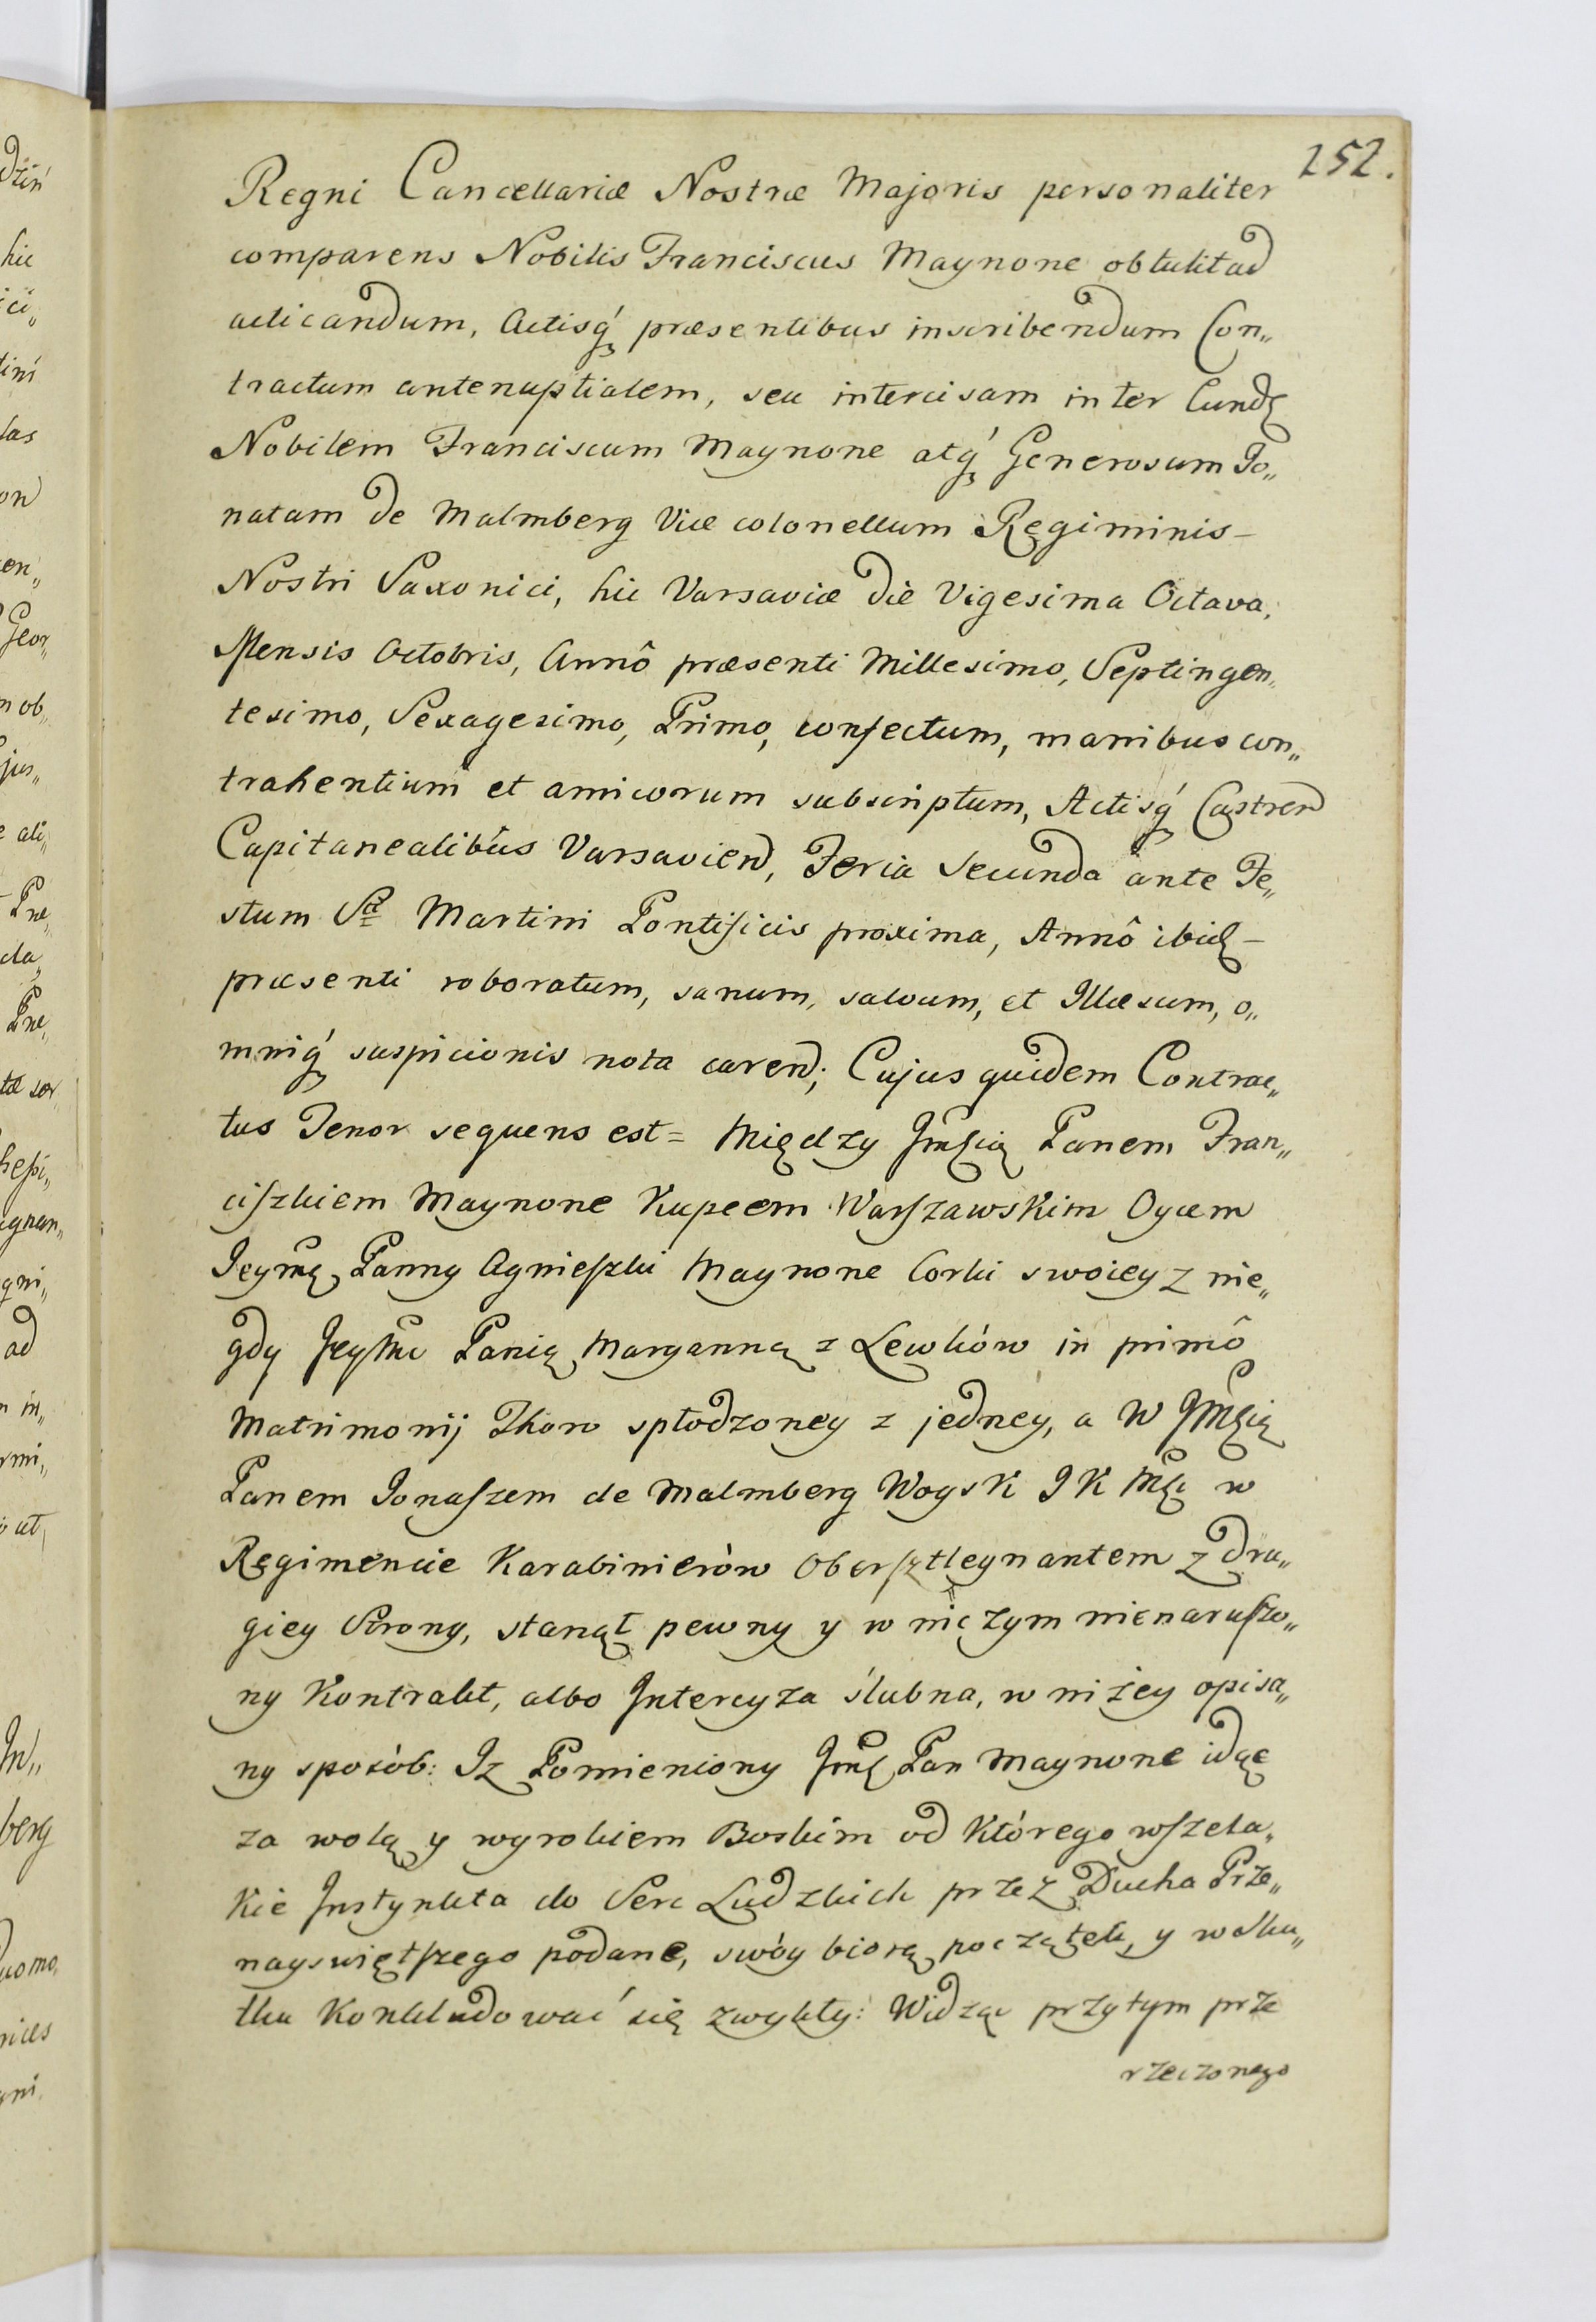 252.
Regni Cancellariæ Nostræ Majoris personaliter
comparens Nobilis Franciscus Maynone obtulit ad
acticandum, Actisq́ præsentibus inscribendum Con„
tractum antenuptialem, seu intercisam inter Eund
Nobilem Franciscum Maynone atq́ Generosum Jo„
natam de Malmberg Vice colonellum Regiminis –
Nostri Saxonici, hic Varsaviæ die Vigesima Octava,
Mensis Octobris, Annô præsenti Millesimo, Septingen„
tesimo, Sexagesimo, Primo, confectum, manibus con„
trahentium et amicorum subscriptum, Actisq́ Castren
Capitanealibus Varsavien, Feria Secunda ante Fe„
stum Sti Martini Pontificis proxima, Annô ibid –
præsenti roboratum, sanum, salvum, et Illæsum, o„
mniq́ suspicionis nota caren; Cujus quidem Contrac„
tus Tenor sequens est = Między Jmścią Panem Fran„
ciſzkiem Maynone Kupcem Warſzawskim Oycem
Jeymę Panny Agnieſzki Maynone Corki swoiey z nie„
gdy Jeymć Panią Maryanną z Lewków in primô
Matrimonij Thoro spłodzoney z jedney, a W Jmścią
Panem Jonaſzem de Malmberg Woysk J K Mści w
Regimencie Karabinierów Oberſztleynantem z dru„
giey Strony, stanął pewny y w niczym nienaruſzo„
ny Kontrakt, albo Intercyza ślubna, w niżey opisa„
ny sposób: Iz Pomieniony Jmć Pan Maynone idąc
za wolą y wyrokiem Boskim od Którego wſzela„
Kie Jnstynkta do Serc Ludzkich przez Ducha Prze„
nayswiętſzego podane, swóy biorą początek, y w sku„
tku Konkludować się zwykły: Widząc przytym prze
rzeczonego